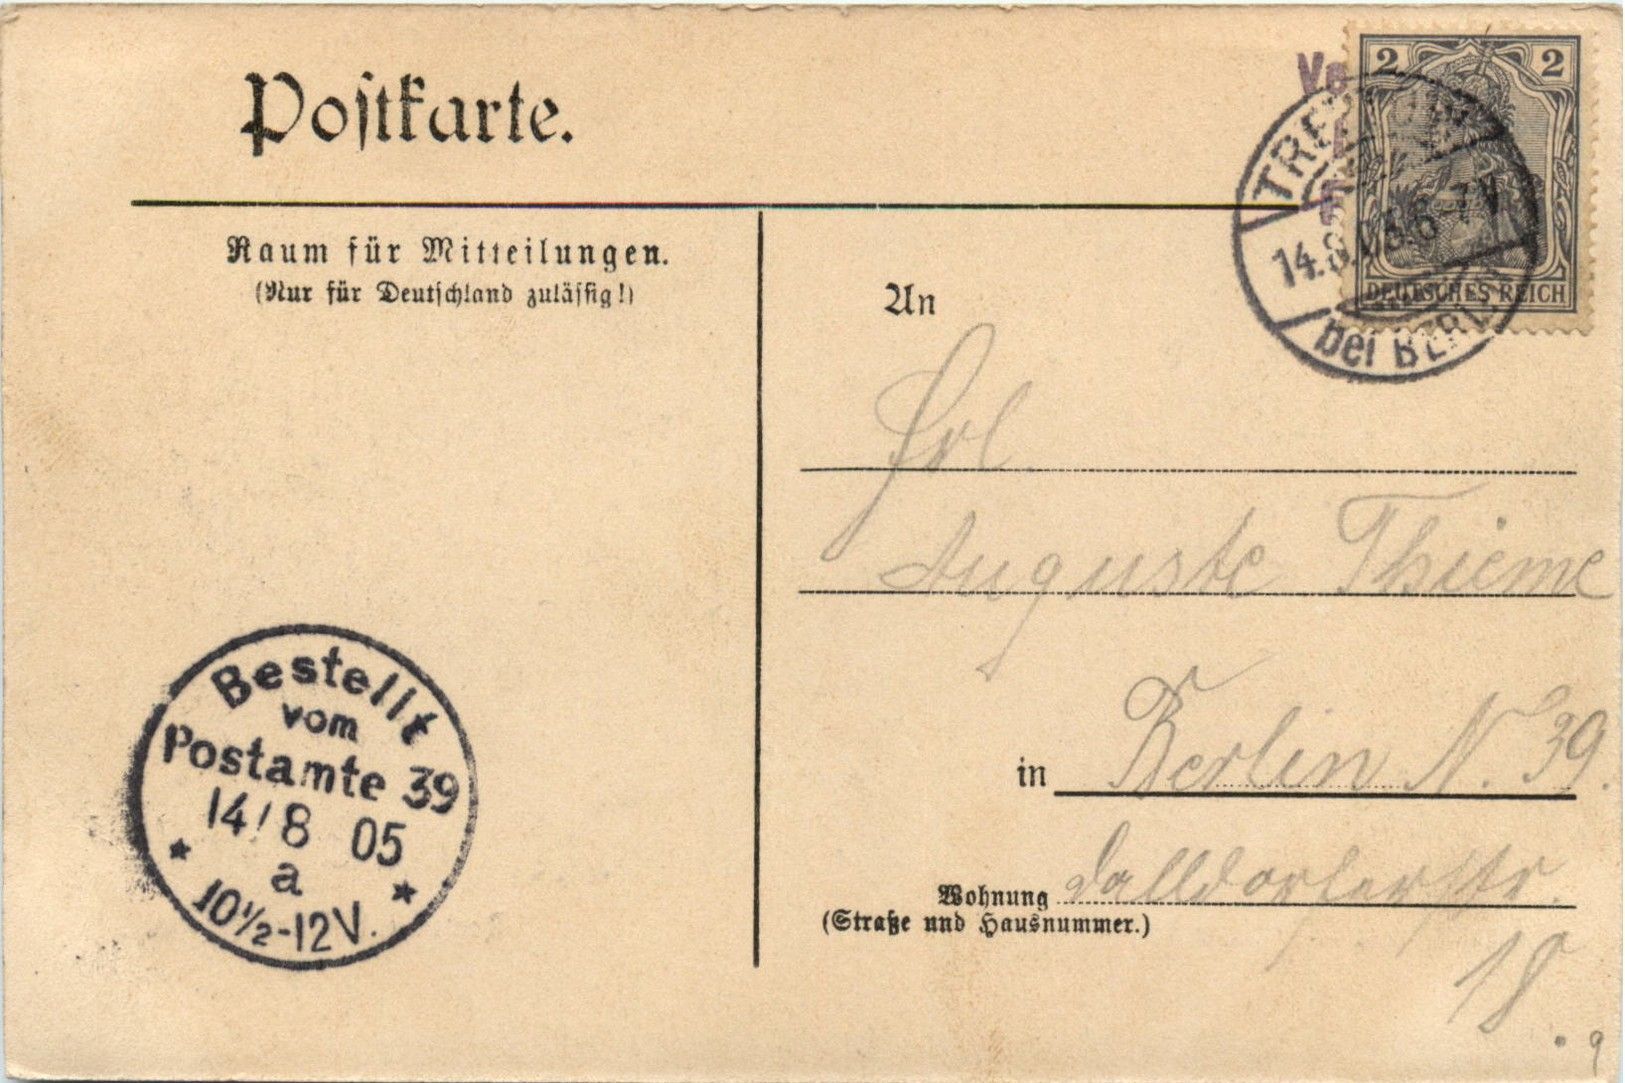 Postkarte.
2 2
DEUTSCHES REICH
14.8.05.6-7V
bei BERLIN
Raum für Mitteilungen.
(Nur für Deutschland zulässig!)
An
Frl.
Auguste Thieme
in Berlin N. 39.
Wohnung Dalldorferstr.
(Straße und Hausnummer.)
18
Bestellt
vom
Postamte 39
14/8 05
a
10½-12V.
9